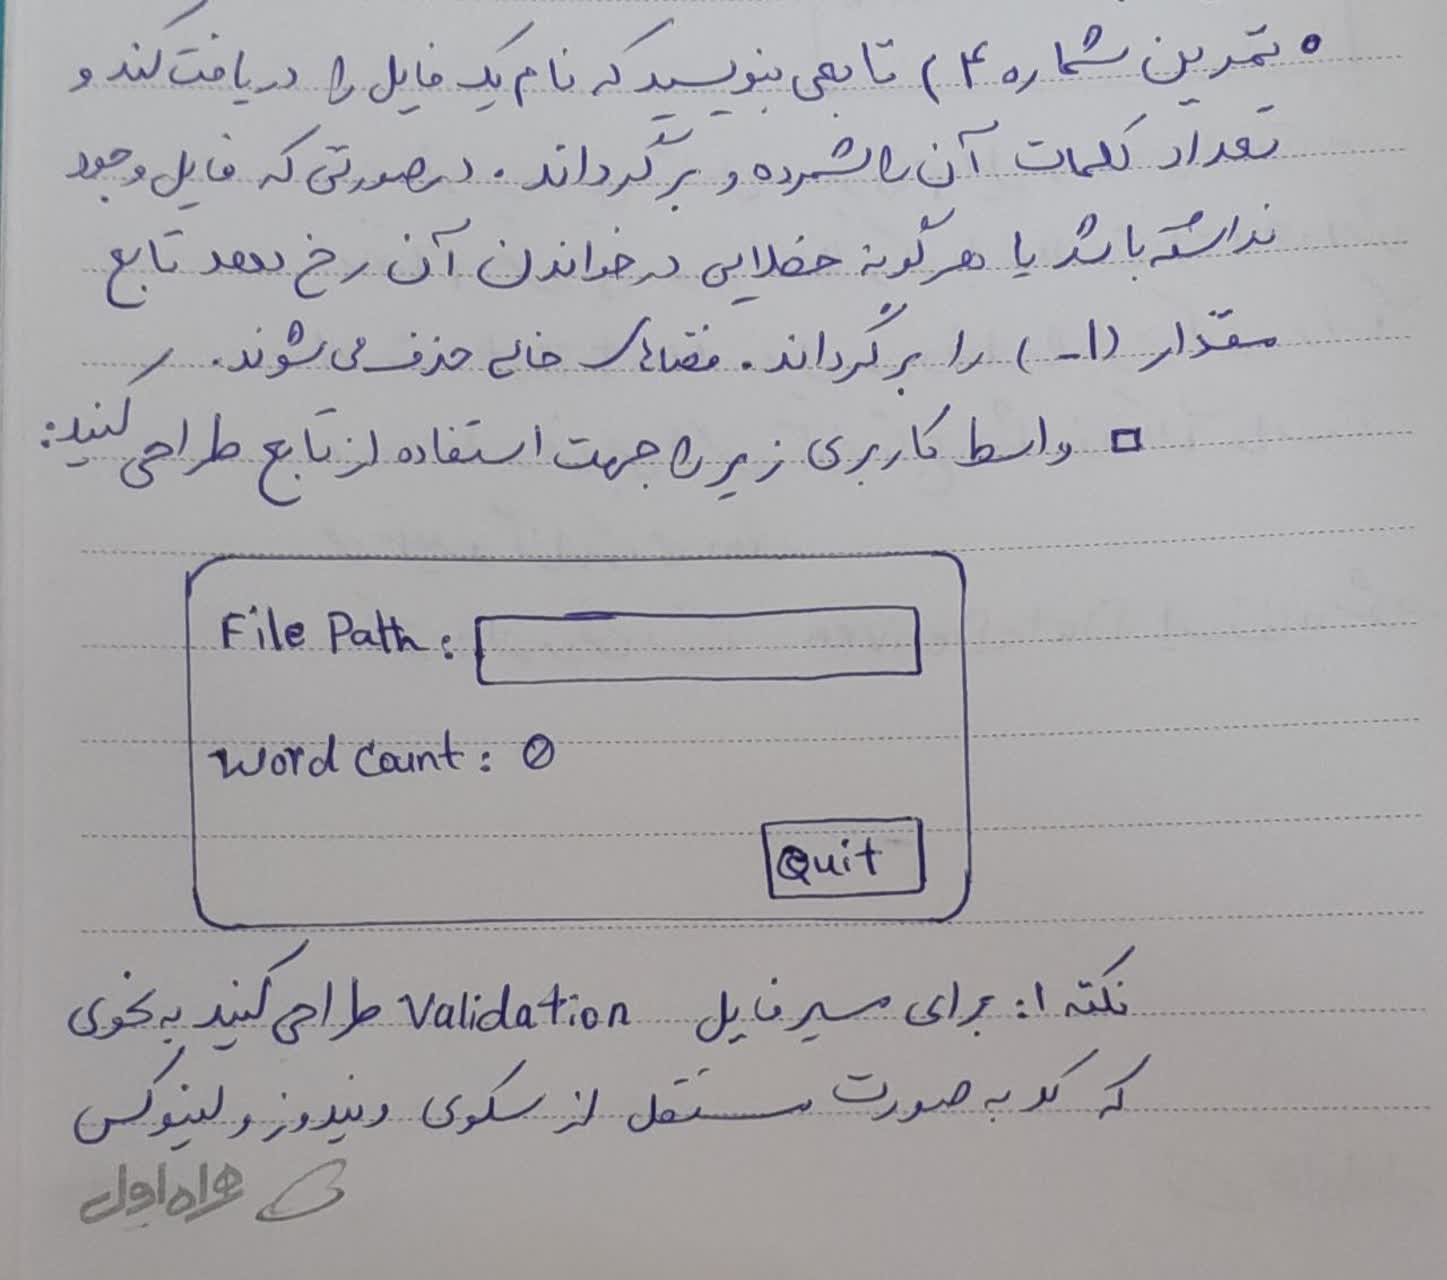 • تمرین شماره ۴) تابعی بنویسید که نام یک فایل را دریافت کند و
تعداد کلمات آن را شمرده و برگرداند. درصورتی که فایل وجود
نداشته باشد یا هرگونه خطایی در خواندن آن رخ دهد تابع
مقدار (۱-) را برگرداند. فضاهای خالی حذف می شوند.
□ واسط کاربری زیر را جهت استفاده از تابع طراحی کنید:
File Path:
Word Count: 0
Quit
نکته ۱: برای مسیر فایل Validation طراحی کنید به نحوی
که کد به صورت مستقل از سکوی ویندوز و لینوکس
همراه اول